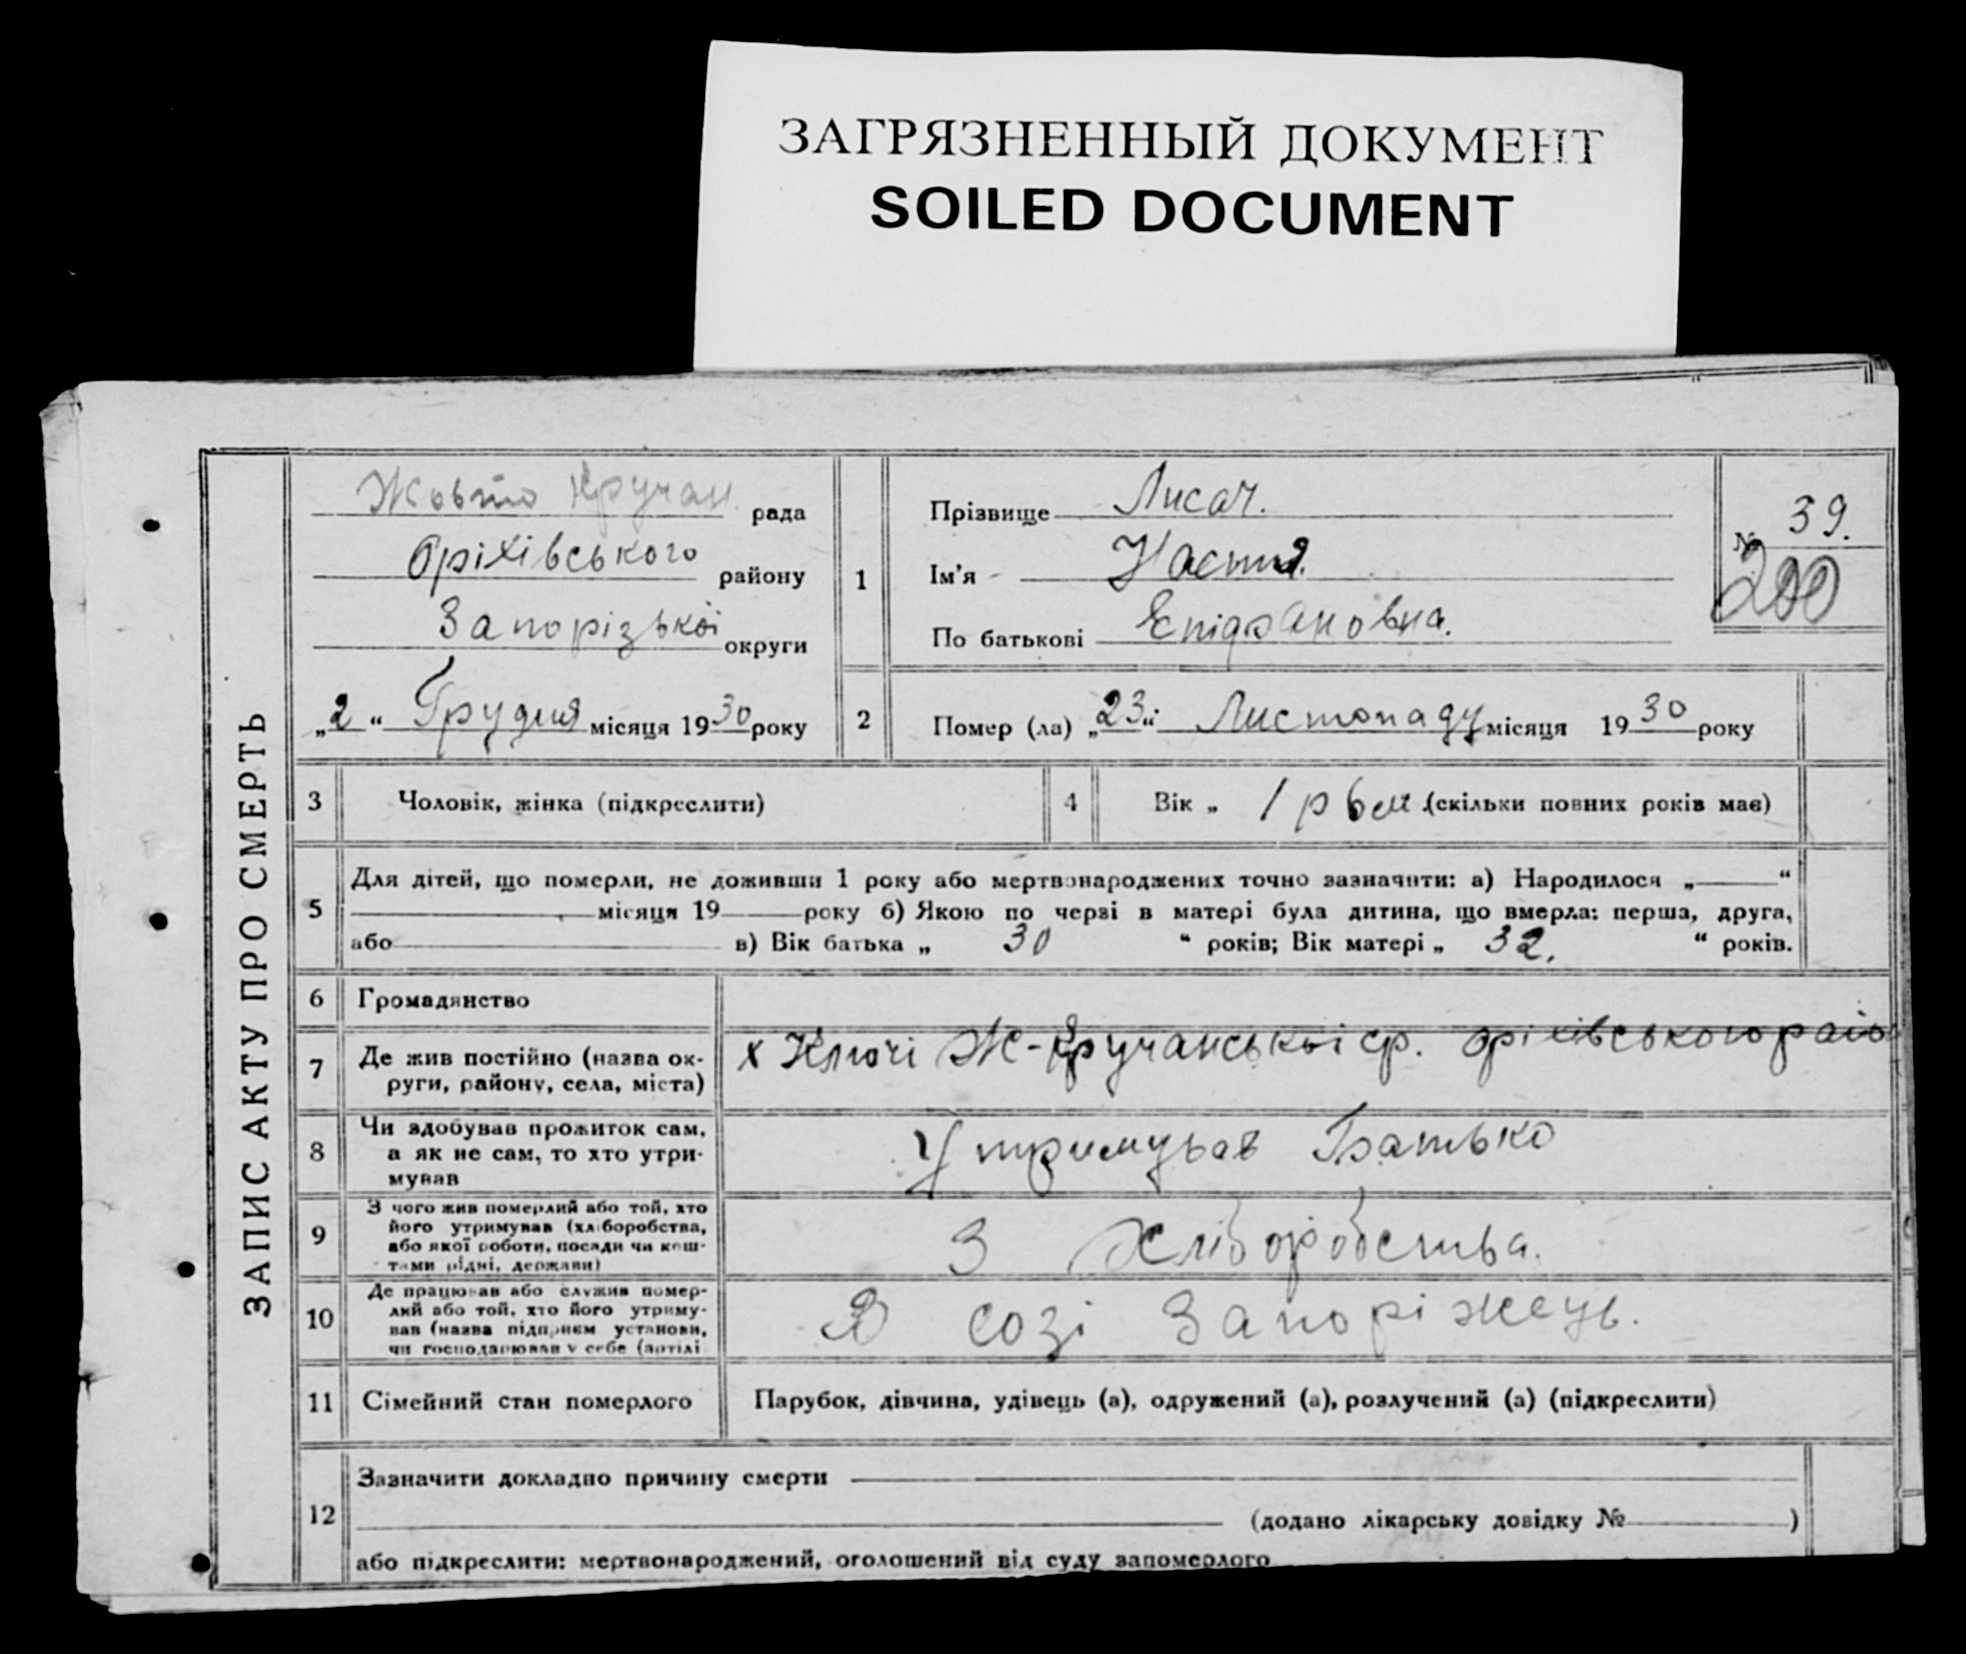 ЗАГРЯЗНЕННЫЙ ДОКУМЕНТ
SOILED DOCUMENT
ЗАПИС АКТУ ПРО СМЕРТЬ
Жовто Кручан рада
Оріхівського району
Запорізької округи
„2“ Грудня місяця 1930 року
1
Прізвище Лисач.
Ім'я Настя.
По батькові Епіфановна.
№ 39.
200
2
Помер (ла) „23“ Листопаду місяця 1930 року
3 Чоловік, жінка (підкреслити)
4 Вік „ 1 р 6 м (скільки повних років має)
5 Для дітей, що померли, не доживши 1 року або мертвонароджених точно зазначити: а) Народилося „ “
місяця 19 року б) Якою по черзі в матері була дитина, що вмерла: перша, друга,
або в) Вік батька „ 30 “ років; Вік матері „ 32. “ років.
6 Громадянство
7 Де жив постійно (назва ок-
руги, району, села, міста)
х Ключі Ж-Кручанської ср. Оріхівського райо
8 Чи здобував прожиток сам,
а як не сам, то хто утри-
мував
Утримував Батько
9 З чого жив померлий або той, хто
його утримував (хліборобства,
або якої роботи, посади чи кош-
тами рідні, держави)
З Хліборобства.
10 Де працював або служив помер-
лий або той, хто його утриму-
вав (назва підприєм установи,
чи господарював у себе (артілі
В созі Запоріжець.
11 Сімейний стан померлого
Парубок, дівчина, удівець (а), одружений (а), розлучений (а) (підкреслити)
12 Зазначити докладно причину смерти
(додано лікарську довідку № )
або підкреслити: мертвонароджений, оголошений від суду запомерлого